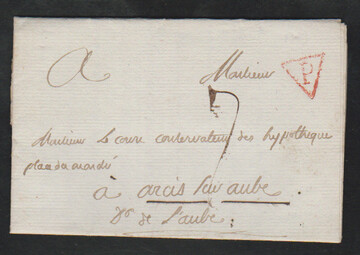 A Monsieur
P
7
Monsieur le conservateur des hypotheque
place du marché
à arcis sur aube
Dt de l'aube